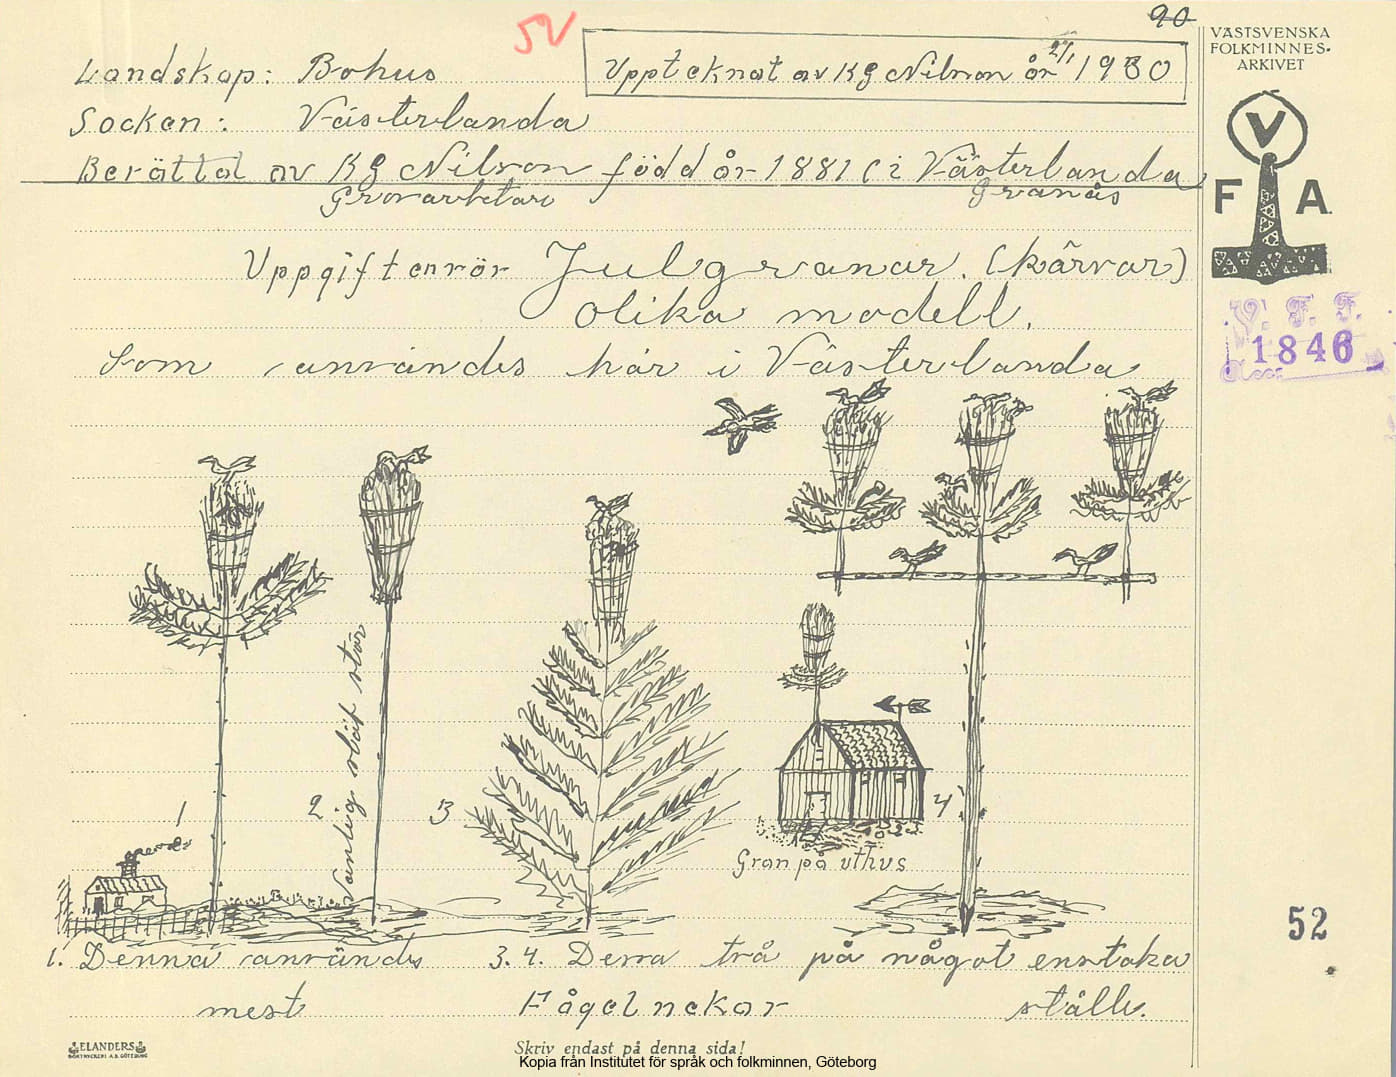 90
5V
Landskap: Bohus
Upptcknat av KG Nilson år 2/1 1930
VÄSTSVENSKA
FOLKMINNES-
ARKIVET
Socken: Västerlanda
Berättat av KG Nilson född år 1881 i Västerlanda
Grovarbetare
Granås
V
F A.
Uppgiften rör Julgranar. (kärvar)
olika modell.
V. F. F.
1846
Som användes här i Västerlanda
1
2
Vanlig slät stör
3
4
Gran på uthus
52
1. Denna användes
mest
3. 4. Dessa två på något enstaka
Fågelnekar ställe.
ELANDERS
BOKTRYCKERI A.B. GÖTEBORG
Skriv endast på denna sida!
Kopia från Institutet för språk och folkminnen, Göteborg